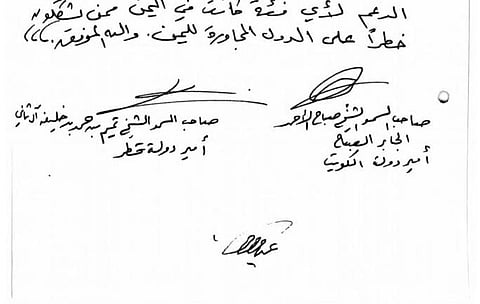 الدعم لأي فئة كانت في اليمن ممن يشكلون
خطراً على الدول المجاورة لليمن. والله الموفق،،،
صاحب السمو الشيخ صباح الأحمد
الجابر الصباح
أمير دولة الكويت
صاحب السمو الشيخ تميم بن حمد بن خليفة آل ثاني
أمير دولة قطر